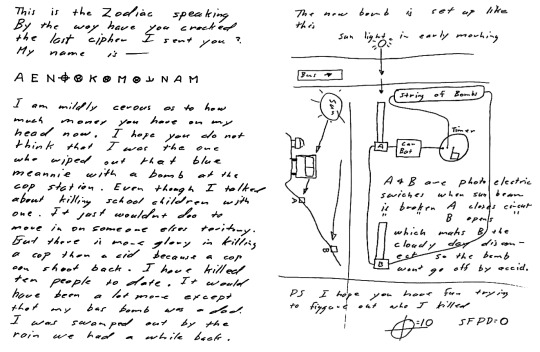 This is the Zodiac speaking
By the way have you cracked
the last cipher I sent you?
My name is —
A E N ⊕ ⊗ K ⊗ M ⊗ ⅃ N A M
I am mildly cerous as to how
much money you have on my
head now. I hope you do not
think that I was the one
who wiped out that blue
meannie with a bomb at the
cop station. Even though I talked
about killing school children with
one. It just wouldnt doo to
move in on someone elses teritory.
But there is more glory in killing
a cop than a cid because a cop
can shoot back. I have killed
ten people to date. It would
have been a lot more except
that my bus bomb was a dud.
I was swamped out by the
rain we had a while back.
The new bomb is set up like
this
sun light in early morning
Bus →
Sun
String of Bombs
A
Car Bat
Timer
A
B
A & B are photo electric
switches when sun beam
is broken A closes circut
B opens " "
which maks B the
cloudy day disconect
so the bomb
wont go off by accid.
B
PS I hope you have fun trying
to figgure out who I killed
⌖=10 SFPD=0